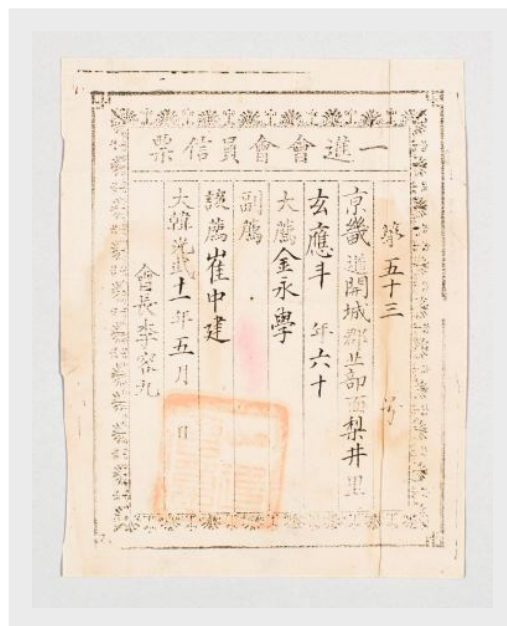 一進會會員信票
第 五十三 号
京畿道開城郡北部面梨井里
玄應斗 年六十
大薦 金永學
副薦
護薦 崔中建
大韓光武十一年五月 日
會長李容九